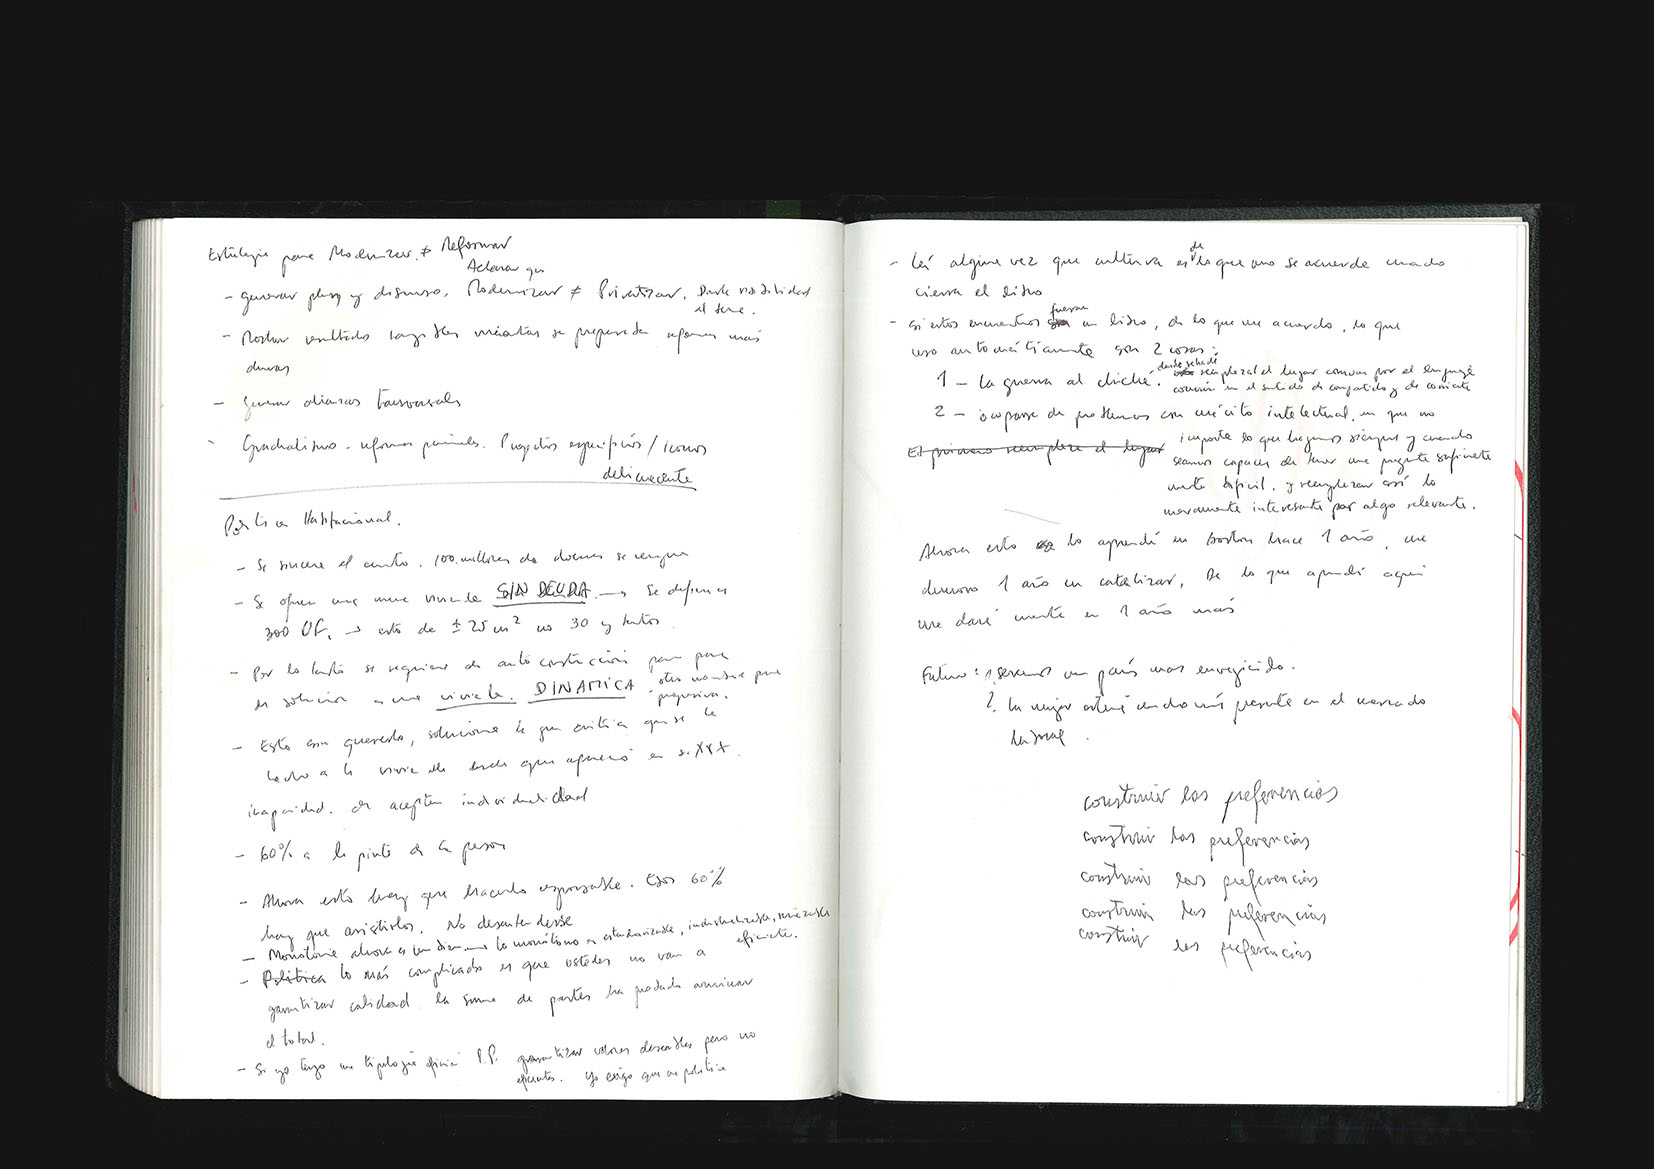 Estrategia para Modernizar ≠ Reformar
Aclarar que
- generar piso y discurso. Modernizar ≠ Privatizar. Darle visibilidad
el tema.
- Mostrar resultados tangibles mientras se preparan reformas más
duras
- Generar alianzas transversales
Gradualismo - reformas parciales. Proyectos específicos / iconos
delincuente
Política Habitacional.
- Se sincere el cuento. 100 millones de dolares se
- Se ofrece una nueva vivienda SIN DEUDA. → Se definen
300 UF. → esto da ± 25 m² no 30 y tantos.
- Por lo tanto se requiere de auto construcción para pasar
de solución a una vivienda. DINAMICA - otro nombre para
progresiva.
- Esto con quererlo, soluciona la gran critica que se le
hecho a la vivienda desde que apareció en s. XX.
incapacidad. de aceptar individualidad
- 60% a la pinta de la persona
- Ahora esto hay que hacerlo responsable. Esos 60%
hay que asistirlos. No desentenderse
- Monotonía ahora es un bien lo monótono es estandarizable, industrializable,
eficiente.
- Politica lo más complicado es que ustedes no van a
garantizar calidad la suma de partes ha podido arruinar
el total.
- Si yo tengo una tipología P.P. garantizar valores deseables pero no
eficientes. Yo exijo que la política
- Leí alguna vez que cultura es de lo que uno se acuerda cuando
cierra el libro
- si estos encuentros fueran un libro, de lo que me acuerdo, lo que
uso automáticamente son 2 cosas:
1 - la guerra al cliché. reemplazar el lugar comun por el lenguaje
común en el sentido de compartido y de corriente
2 - ocuparse de problemas con mérito intelectual. en que no
El primero reemplaza el lugar
importa lo que hagamos siempre y cuando
seamos capaces de tener una pregunta suficiente
mente dificil. y reemplazar así lo
meramente interesante por algo relevante.
Ahora esto lo aprendí en Boston hace 1 año, me
demoro 1 año en catalizar, De lo que aprendí aqui
me daré cuenta en 1 año más
Futuro: 1. seremos un país mas envejecido.
2. la mujer estará cada vez más presente en el mercado
laboral.
construir las preferencias
construir las preferencias
construir las preferencias
construir las preferencias
construir las preferencias